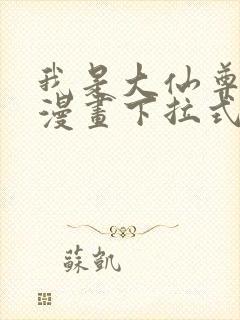 我是大仙尊
漫畫下拉式
蘇凱